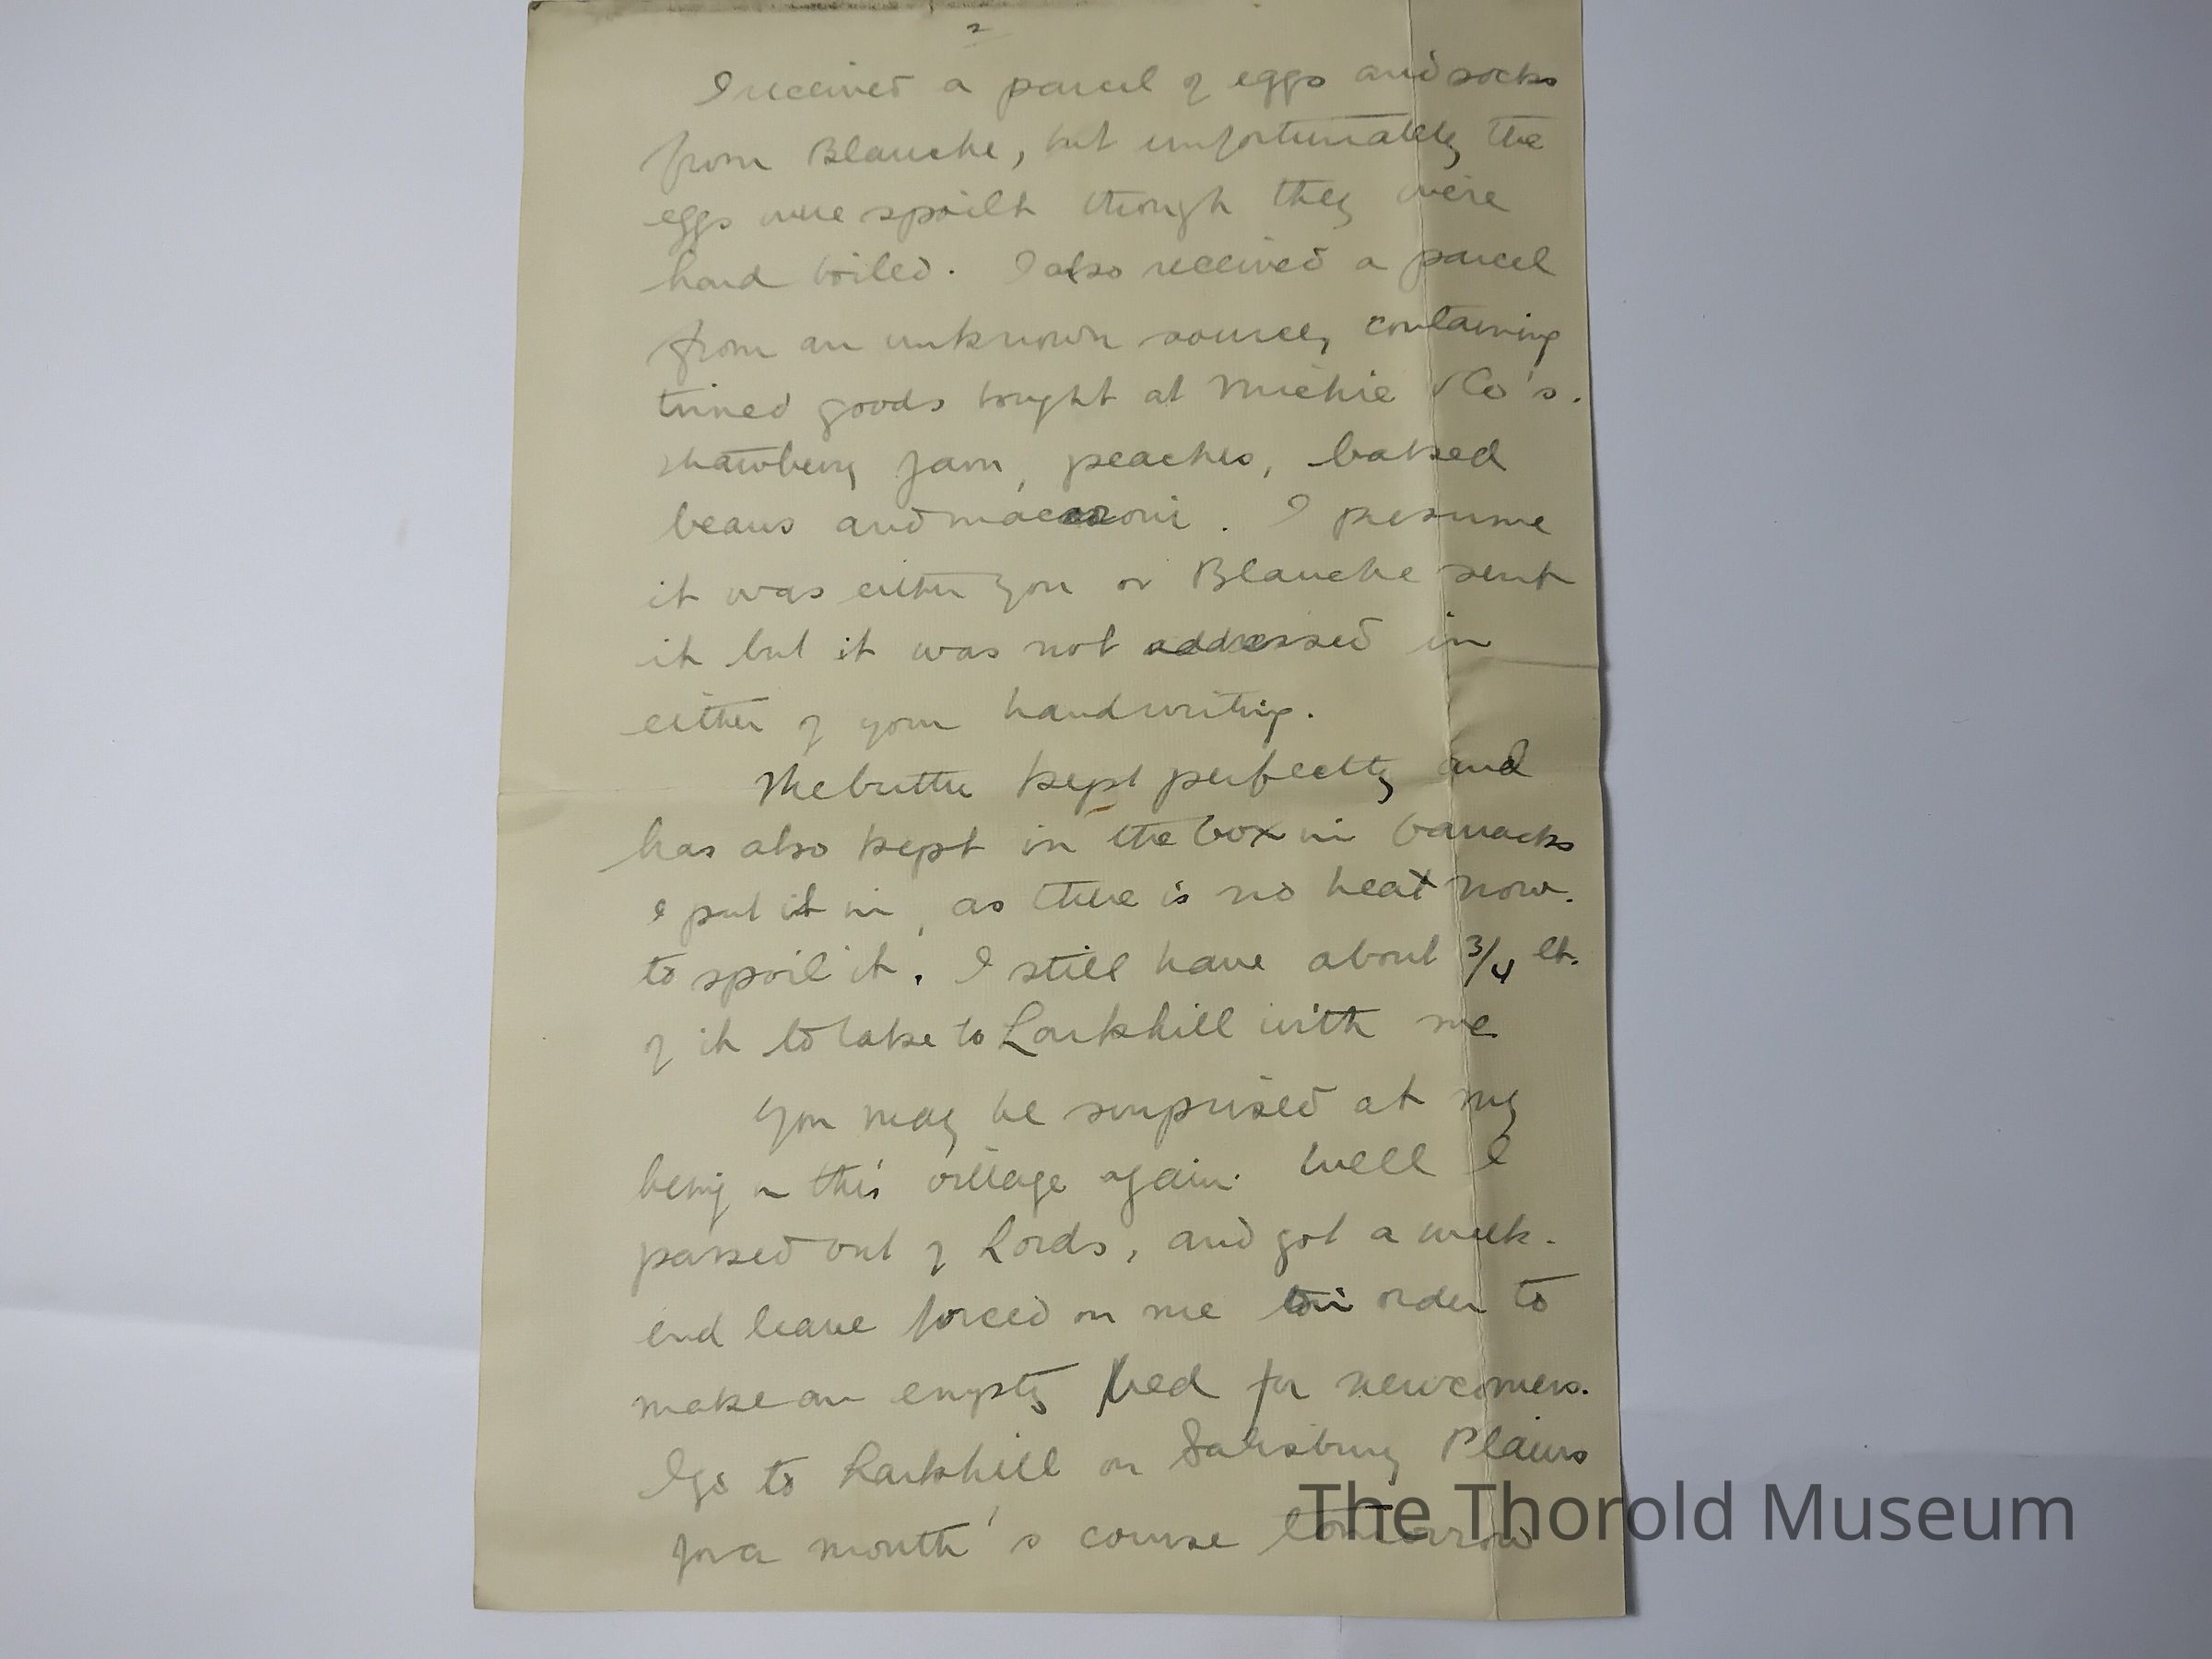 2
I received a parcel of eggs and socks
from Blanche, but unfortunately the
eggs were spoilt though they were
hard boiled. I also received a parcel
from an unknown source, containing
tinned goods bought at Michie & Co's.
strawberry jam, peaches, baked
beans and macaroni. I presume
it was either you or Blanche sent
it but it was not addressed in
either of your handwriting.
The butter kept perfectly and
has also kept in the box in barracks
I put it in, as there is no heat now.
to spoil it. I still have about 3/4 lb.
of it to take to Larkhill with me
You may be surprised at my
being in this village again. Well I
passed out of Lords, and got a week-
end leave forced on me in order to
make an empty bed for newcomers.
I go to Larkhill on Salisbury Plains
for a month's course tomorrow
The Thorold Museum